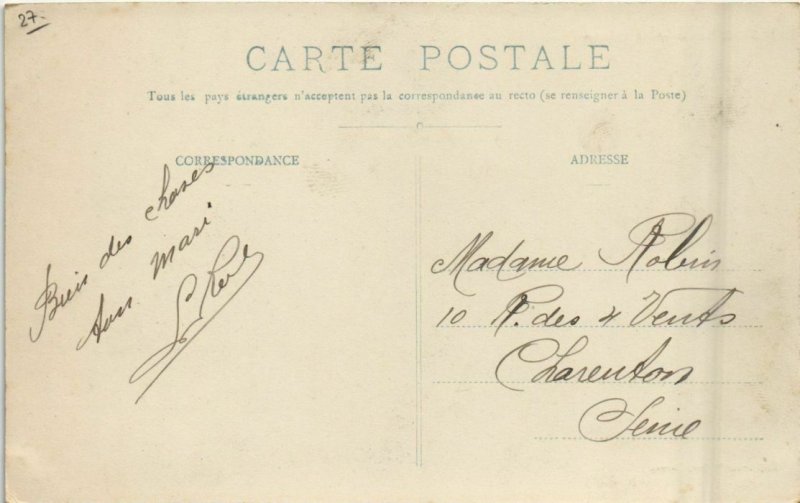 27-
CARTE POSTALE
Tous les pays étrangers n'acceptent pas la correspondance au recto (se renseigner à la Poste)
CORRESPONDANCE
Bien des choses
ton mari
ADRESSE
Madame Robin
10 R. des 4 Vents
Charenton
Seine